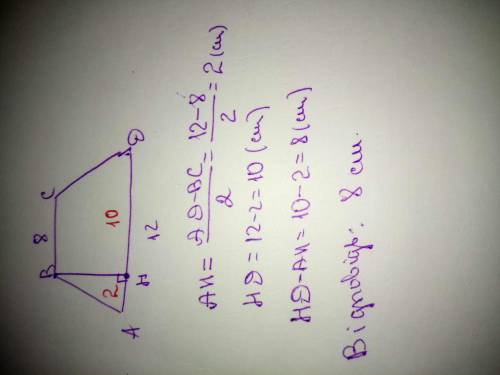 B 8 C
2 10
A H D
12
AH = AD-BC/2 = 12-8/2 = 2 (см)
HD = 12-2 = 10 (см)
HD-AH = 10-2 = 8 (см)
Відповідь: 8 см.